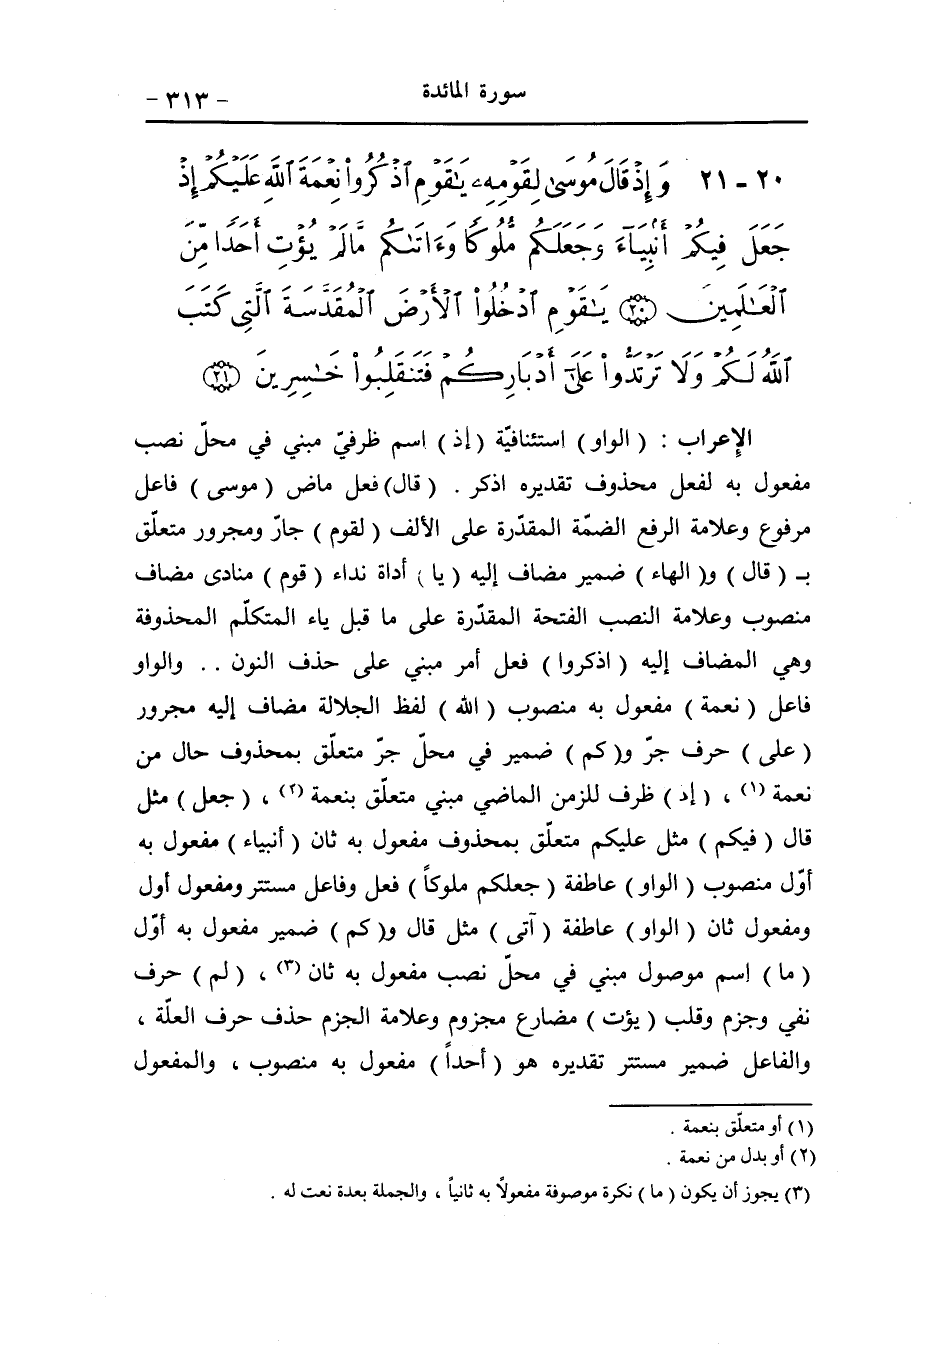 سورة المائدة - ٣١٣ -
٢٠ - ٢١ وَإِذْ قَالَ مُوسَىٰ لِقَوْمِهِۦ يَٰقَوْمِ ٱذْكُرُوا۟ نِعْمَةَ ٱللَّهِ عَلَيْكُمْ إِذْ
جَعَلَ فِيكُمْ أَنۢبِيَآءَ وَجَعَلَكُم مُّلُوكًا وَءَاتَىٰكُم مَّا لَمْ يُؤْتِ أَحَدًا مِّنَ
ٱلْعَٰلَمِينَ (٢٠) يَٰقَوْمِ ٱدْخُلُوا۟ ٱلْأَرْضَ ٱلْمُقَدَّسَةَ ٱلَّتِى كَتَبَ
ٱللَّهُ لَكُمْ وَلَا تَرْتَدُّوا۟ عَلَىٰٓ أَدْبَارِكُمْ فَتَنقَلِبُوا۟ خَٰسِرِينَ (٢١)
الإعراب : ( الواو ) استئنافيّة ( إذ ) اسم ظرفيّ مبني في محلّ نصب
مفعول به لفعل محذوف تقديره اذكر . ( قال ) فعل ماض ( موسى ) فاعل
مرفوع وعلامة الرفع الضمّة المقدّرة على الألف ( لقوم ) جارّ ومجرور متعلّق
بـ ( قال ) و( الهاء ) ضمير مضاف إليه ( يا ) أداة نداء ( قوم ) منادى مضاف
منصوب وعلامة النصب الفتحة المقدّرة على ما قبل ياء المتكلّم المحذوفة
وهي المضاف إليه ( اذكروا ) فعل أمر مبني على حذف النون . . والواو
فاعل ( نعمة ) مفعول به منصوب ( الله ) لفظ الجلالة مضاف إليه مجرور
( على ) حرف جرّ و( كم ) ضمير في محلّ جرّ متعلّق بمحذوف حال من
نعمة (١) ، ( إذ ) ظرف للزمن الماضي مبني متعلّق بنعمة (٢) ، ( جعل ) مثل
قال ( فيكم ) مثل عليكم متعلّق بمحذوف مفعول به ثان ( أنبياء ) مفعول به
أوّل منصوب ( الواو ) عاطفة ( جعلكم ملوكاً ) فعل وفاعل مستتر ومفعول أول
ومفعول ثان ( الواو ) عاطفة ( آتى ) مثل قال و( كم ) ضمير مفعول به أوّل
( ما ) اسم موصول مبني في محلّ نصب مفعول به ثان (٣) ، ( لم ) حرف
نفي وجزم وقلب ( يؤت ) مضارع مجزوم وعلامة الجزم حذف حرف العلّة ،
والفاعل ضمير مستتر تقديره هو ( أحداً ) مفعول به منصوب ، والمفعول
(١) أو متعلّق بنعمة .
(٢) أو بدل من نعمة .
(٣) يجوز أن يكون ( ما ) نكرة موصوفة مفعولاً به ثانياً ، والجملة بعدة نعت له .